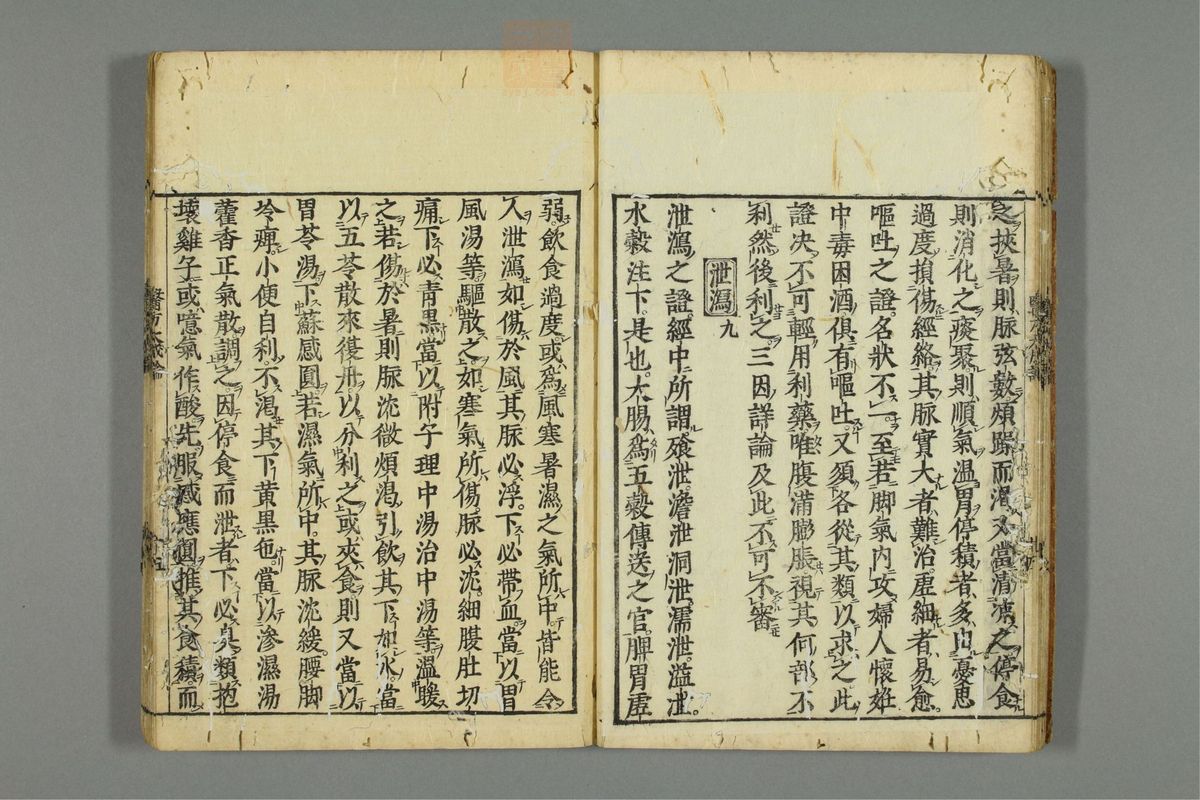 之挾暑則脉弦數煩躁而渴又當清凉之停食
則消化之痰聚則順氣温胃停積者多由憂思
過度損傷經絡其脉實大者難治虚細者易愈
嘔吐之證名狀不一至若脚氣内攻婦人懷姙
中毒因酒俱有嘔吐又須各從其類以求之此
證决不可輕用利藥唯腹滿膨脹視其何部不
利然後利之三因詳論及此不可不審
泄瀉 九
泄瀉之證經中所謂飱泄澹泄洞泄濡泄溢泄
水穀注下是也大腸爲五穀傳送之官脾胃虚
弱飲食過度或爲風寒暑濕之氣所中皆能令
人泄瀉如傷於風其脉必浮下必帶血當以胃
風湯等驅散之如寒氣所傷脉必沈細腹肚切
痛下必青黑當以附子理中湯治中湯等温暖
之若傷於暑則脉沈微煩渴引飲其下如水當
以五苓散來復丹以分利之或夾食則又當以
胃苓湯下蘇感圓若濕氣所中其脉沈緩腰脚
冷痺小便自利不渴其下黄黑色當以滲濕湯
藿香正氣散調之因停食而泄者下必臭類抱
壞雞子或噫氣作酸先服感應圓推其食積而